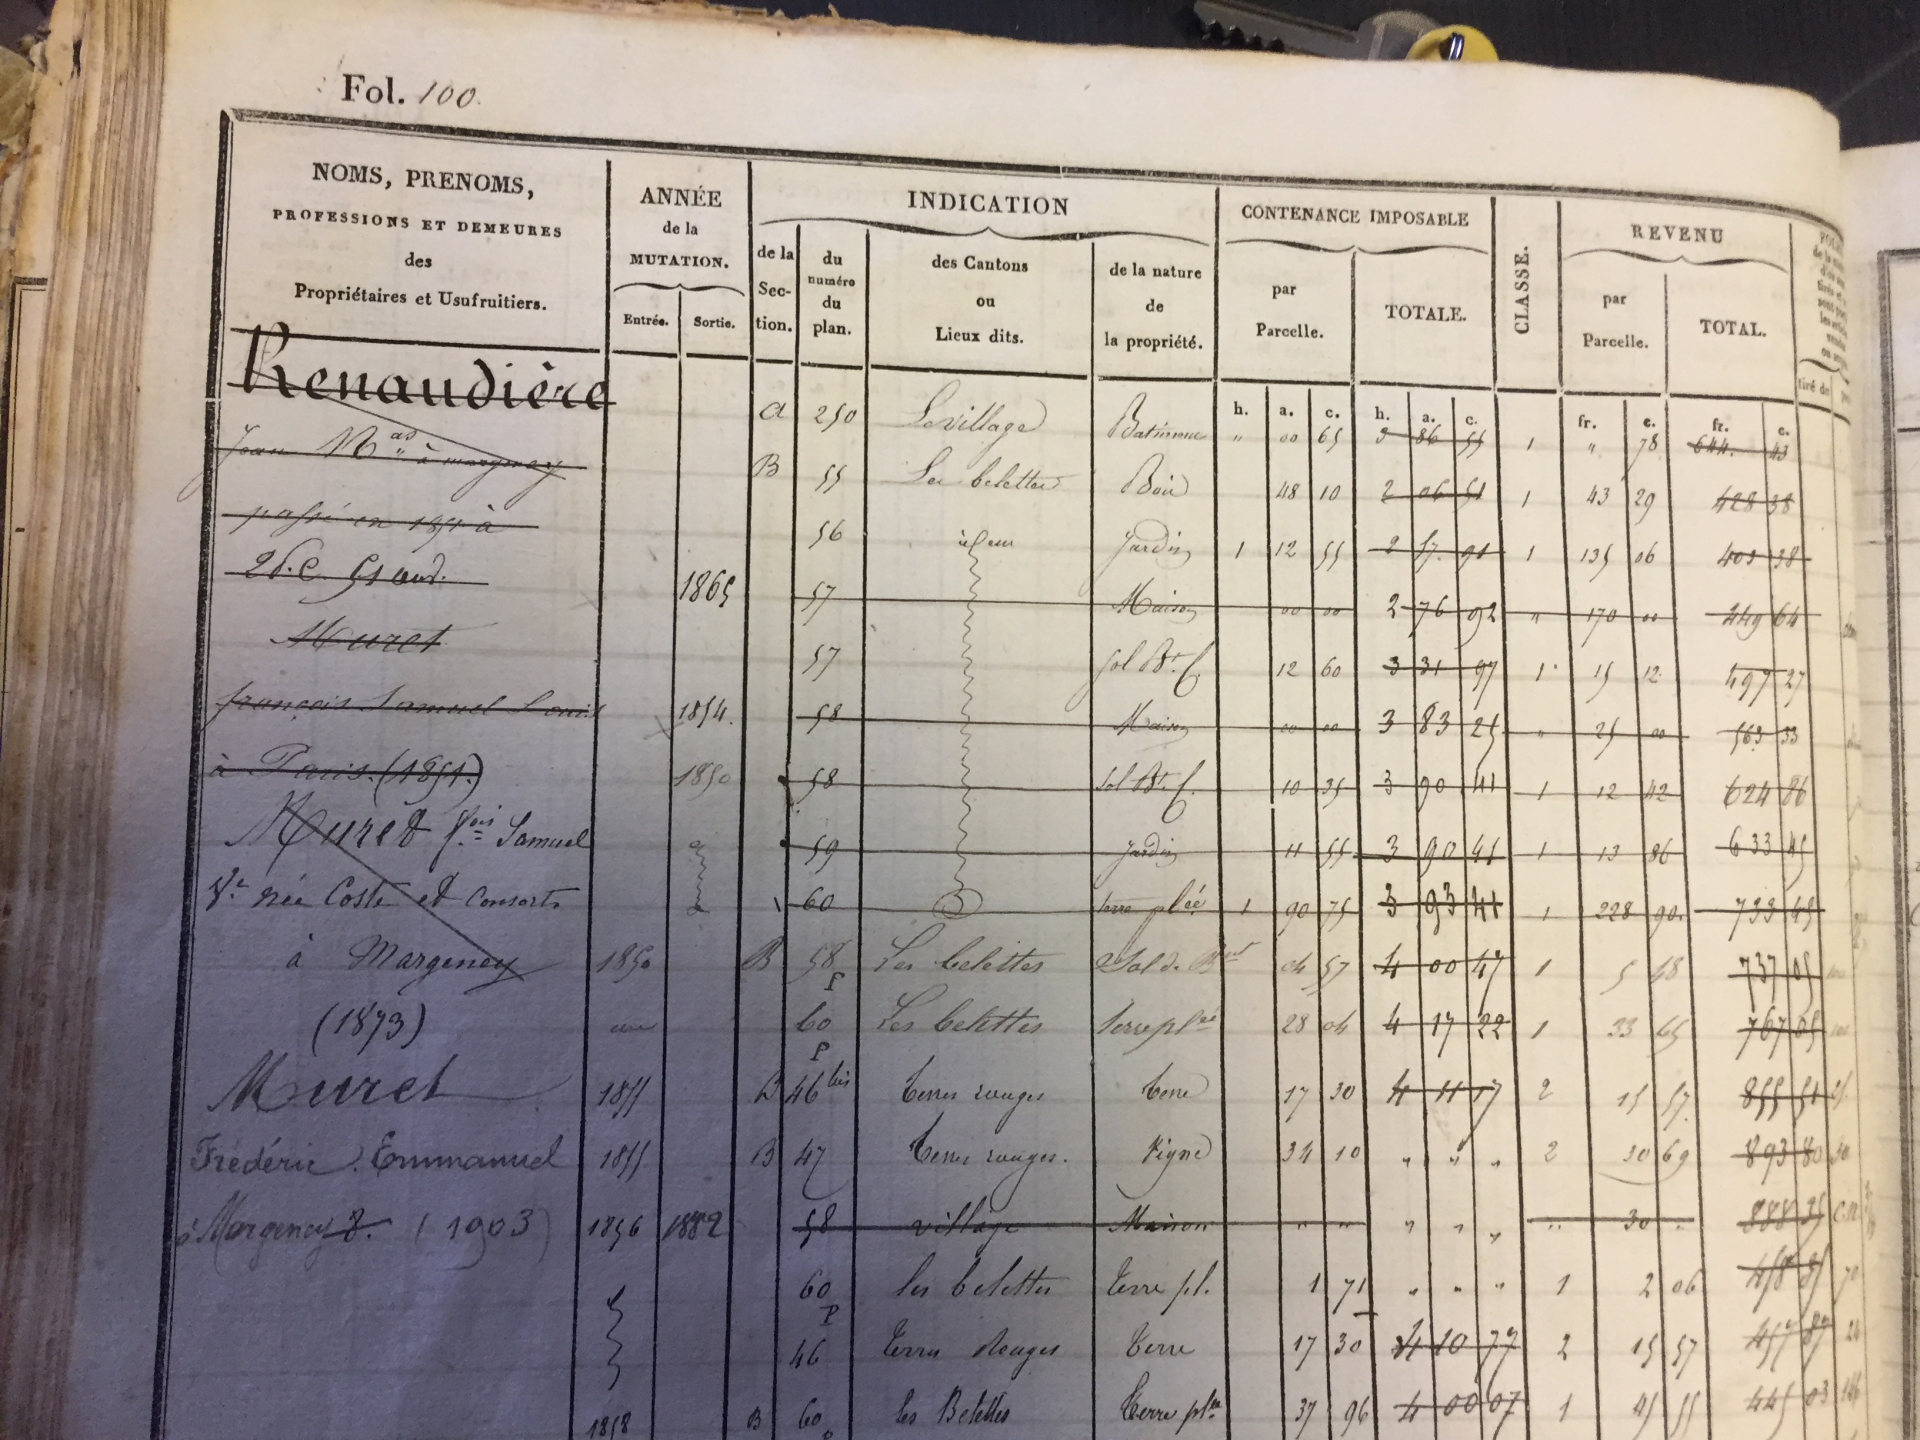 Fol. 100.
NOMS, PRENOMS,
PROFESSIONS ET DEMEURES
des
Propriétaires et Usufruitiers.
ANNÉE
de la
MUTATION.
Entrée. Sortie.
INDICATION
de la Section.
du numéro du plan.
des Cantons
ou
Lieux dits.
de la nature
de
la propriété.
CONTENANCE IMPOSABLE
par
Parcelle.
TOTALE.
CLASSE.
REVENU
par
Parcelle.
TOTAL.
tiré de
h. a. c. h. a. c. fr. c. fr. c.
Renaudière
Jean à margency
passé en 1851 à
Muret
françois Samuel Louis
à Paris. (1851.)
Muret fois Samuel
Ve née Coste et consorts
à Margency
(1873)
Muret
Frédéric Emmanuel
à Margency (1903)
a 250 Le village 00 65 3 86 55 1 " 78 644. 43
B 55 Les belettes Bois 48 10 2 06 51 1 43 29 428 38
56 Jardin 1 12 55 1 135 06 403 38
1865 57 Maison 00 00 2 76 92 " 170 00 249 64
57 Sol Bt. C. 12 60 3 31 97 1 15 12 497 27
1854. 58 Maison 00 00 3 83 25 " 25 00 563 33
1850 58 Sol Bt. C. 10 35 3 90 41 1 12 42 624 86
59 Jardin 11 55 3 90 41 1 13 86 633 45
60 terre plée 1 90 75 3 93 41 1 228 90 733 45
1850 B 58 P Les belettes Sol de Bnt 04 57 4 00 47 1 5 48 737 05
60 P Les belettes terre plée 28 04 4 17 22 1 33 65 767 05
1855 B 46 bis Terres rouges Terre 17 30 4 11 17 2 15 57 855 51
1855 B 47 Terres rouges. Vigne 34 10 " " " 2 30 69 893 80
1856 1882 58 village Maison " " " " " " 30 " 888 35
60 P les belettes Terre pl. 1 71 " " " 1 2 06 458 85
46 Terres Rouges Terre 17 30 4 10 77 2 15 57 457 87
1858 B 60 P les Belettes Terre plée 37 96 4 00 07 1 45 55 445 03